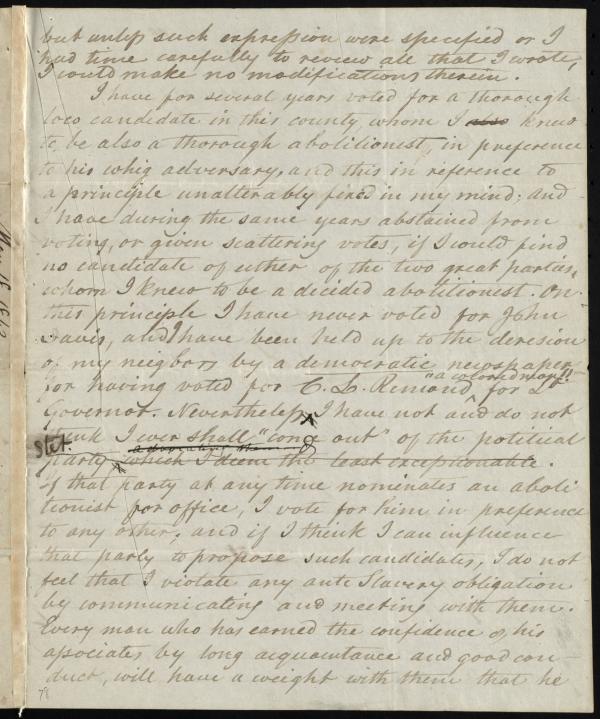 but unless such expression were specified or I
had time carefully to review all that I wrote,
I would make no modifications therein.
I have for several years voted for a thorough
loco candidate in this county, whom I also knew
to be also a thorough abolitionist, in preference
to his whig adversary, and this in reference to
a principle unalterably fixed in my mind; and
I have during the same years abstained from
voting, or given scattering votes, if I could find
no candidate of either of the two great parties,
whom I knew to be a decided abolitionist. On
this principle I have never voted for John
Davis, and I have been held up to the deresion
of my neigbors by a democratic newspaper
for having voted for C. L. Remond, "a colored man"! for
Governor. Nevertheless, I have not and do not
think I ever shall "come out" of the political
Stet. advocating them
party which I deem the least exceptionable.
If that party at any time nominates an aboli
tionist for office, I vote for him in preference
to any other; and if I think I can influence
that party to propose such candidates, I do not
feel that I violate any anti Slavery obligation
by communicating and meeting with them.
Every man who has earned the confidence of his
associates, by long acquaintance and good con
duct, will have a weight with them that he
78